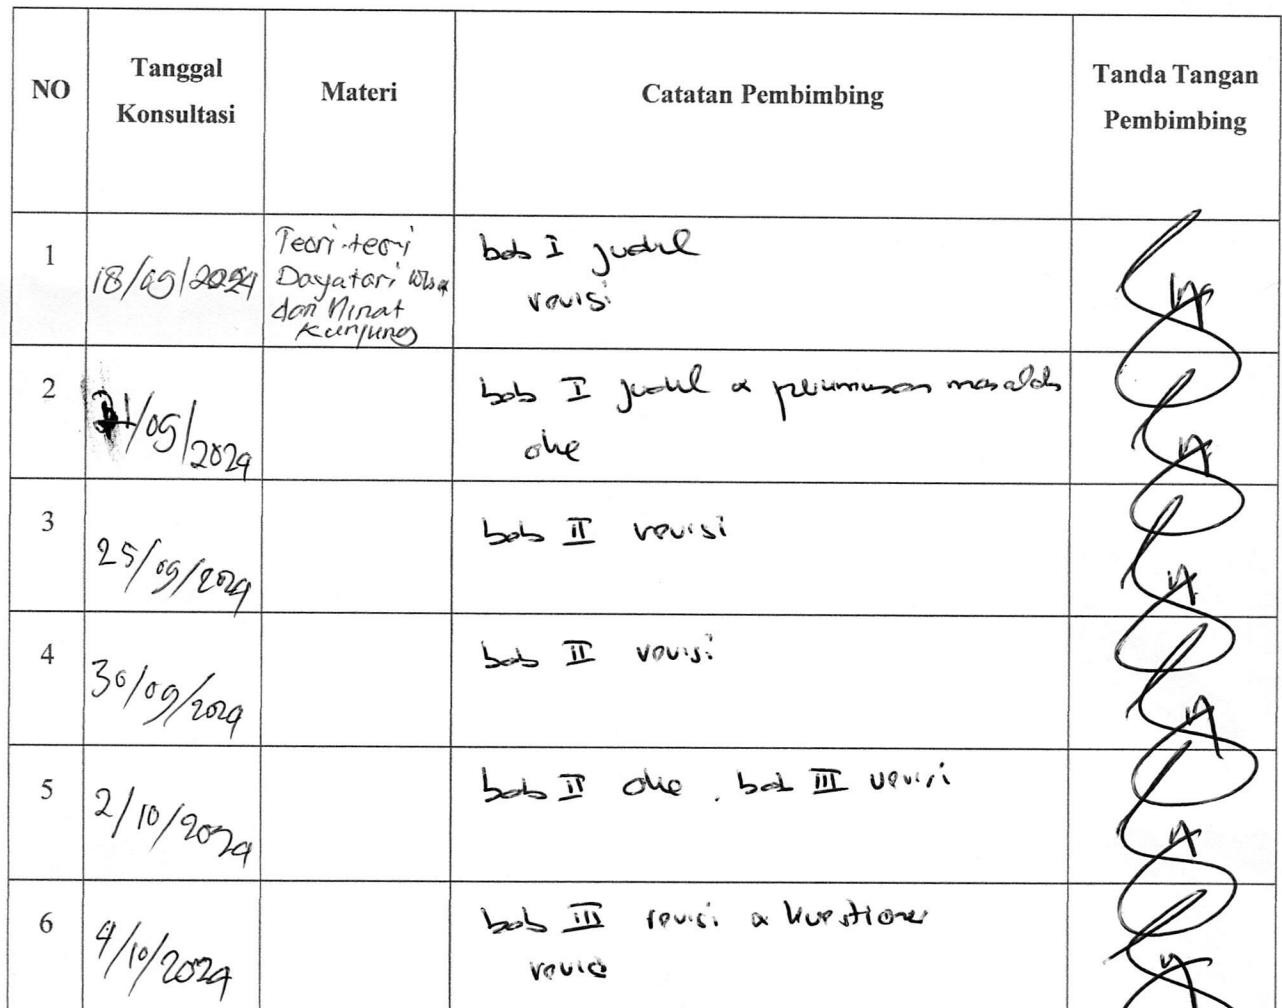 NO
Tanggal
Konsultasi
Materi
Catatan Pembimbing
Tanda Tangan
Pembimbing
1
18/09/2024
Teori-teori
Dayatari Wisa
dan Minat
Kunjung
bab I judul
revisi
2
21/09/2024
bab I judul & perumusan masalah
oke
3
25/09/2024
bab II revisi
4
30/09/2024
bab II revisi
5
2/10/2024
bab II oke, bab III revisi
6
4/10/2024
bab III revisi & kuestioner